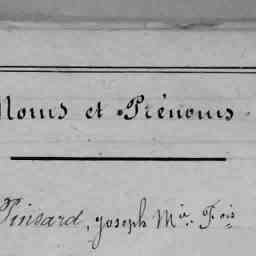 Noms et Prénoms
Pinsard, Joseph M.ie F.ois